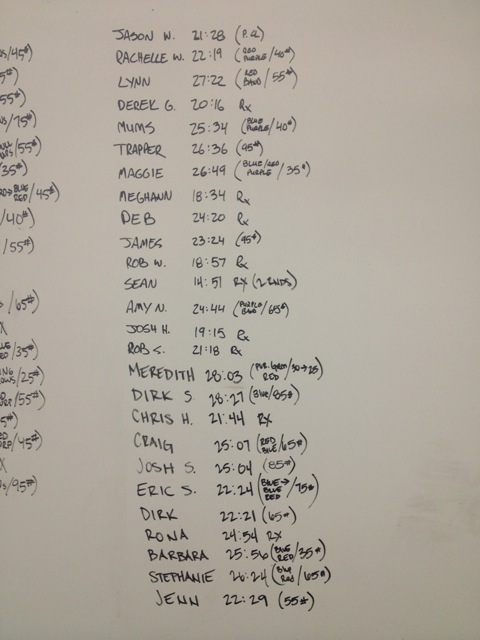 s/45#)
5#)
55#)
s/75#)
/55#)
/35#)
RED→BLUE RED/45#)
/40#)
/55#)
/65#)
X
/35#)
/25#)
/55#)
5#)
/45#)
X
s/95#)
JASON W. 21:28 (P.R.)
RACHELLE W. 22:19 (RED PURPLE/40#)
LYNN 27:22 (RED BAND/55#)
DEREK G. 20:16 Rx
MUMS 25:34 (BLUE PURPLE/40#)
TRAPPER 26:36 (95#)
MAGGIE 26:49 (BLUE/RED PURPLE/35#)
MEGHANN 18:34 Rx
DEB 24:20 Rx
JAMES 23:24 (95#)
ROB W. 18:57 Rx
SEAN 14:51 RX (2 RNDS)
AMY N. 24:44 (PURPLE BAND/65#)
JOSH H. 19:15 Rx
ROB S. 21:18 Rx
MEREDITH 28:03 (PUR. RED/30→25)
DIRK S. 28:27 (BLUE/85#)
CHRIS H. 21:44 RX
CRAIG 25:07 (RED BLUE/65#)
JOSH S. 25:04 (85#)
ERIC S. 22:24 (BLUE→ BLUE RED/75#)
DIRK 22:21 (65#)
RONA 24:54 RX
BARBARA 25:56 (BLUE RED/35#)
STEPHANIE 26:24 (BLUE RED/65#)
JENN 22:29 (55#)